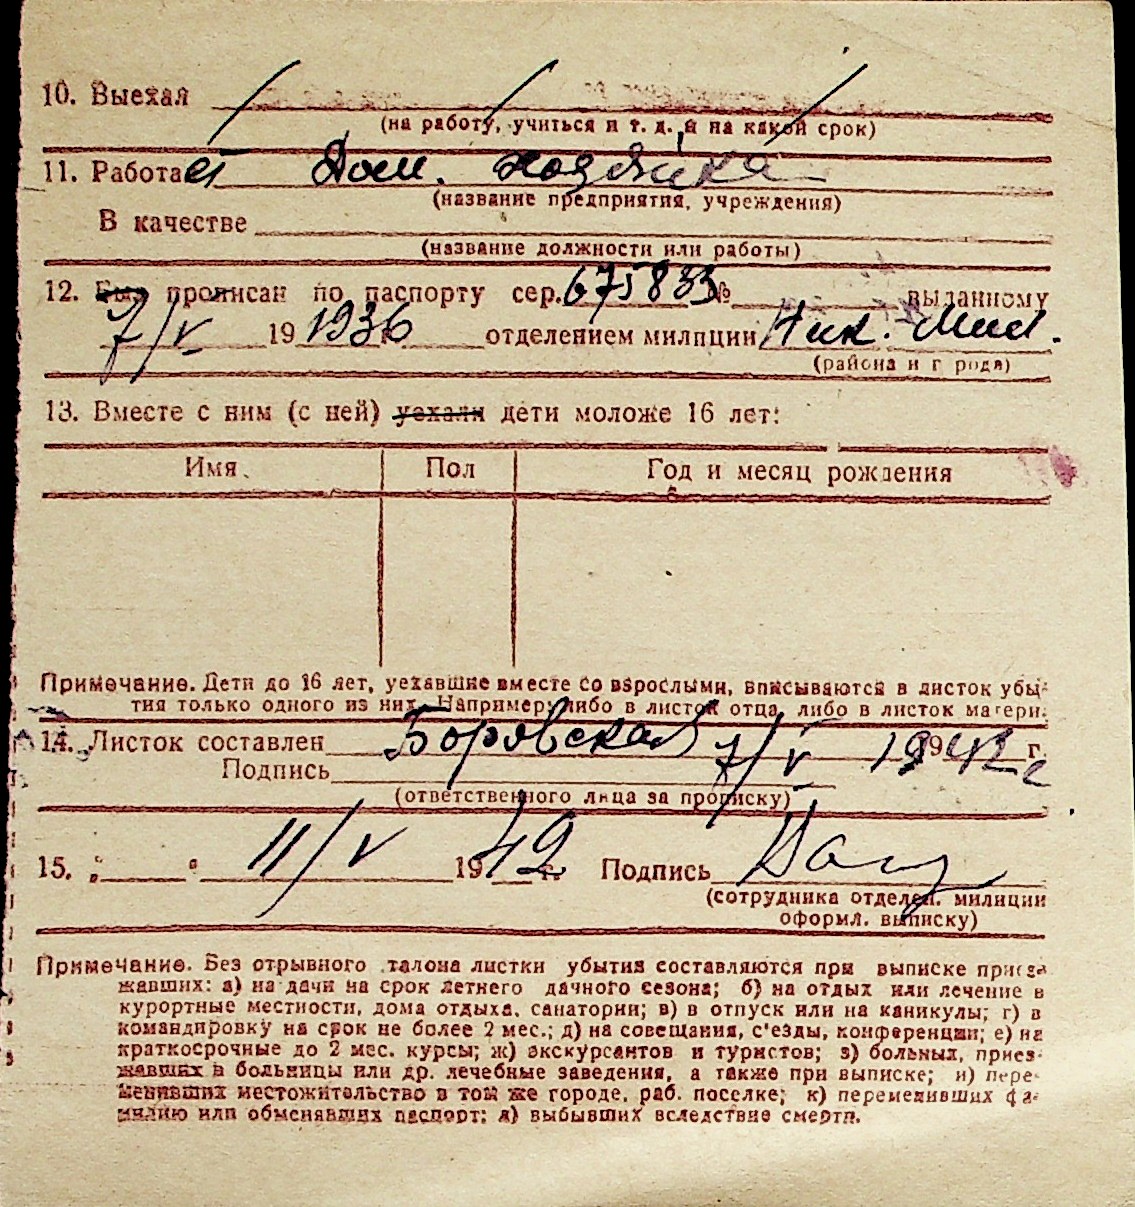 10. Выехал
(на работу, учиться и т. д., и на какой срок)
11. Работает Дом. хозяйка
(название предприятия, учреждения)
В качестве
(название должности или работы)
12. Был прописан по паспорту сер. 675833 № выданному
7/V 19 1936 отделением милиции Ник. Мил.
(района и города)
13. Вместе с ним (с ней) уехали дети моложе 16 лет:
Имя Пол Год и месяц рождения
Примечание. Дети до 16 лет, уехавшие вместе со взрослыми, вписываются в листок убы-
тия только одного из них. Например: либо в листок отца, либо в листок матери.
14. Листок составлен Боровская 7/V 1942 г.
Подпись
(ответственного лица за прописку)
15. „ “ 11/V 1942 г. Подпись
(сотрудника отделен. милиции
оформл. выписку)
Примечание. Без отрывного талона листки убытия составляются при выписке приез-
жавших: а) на дачи на срок летнего дачного сезона; б) на отдых или лечение в
курортные местности, дома отдыха, санатории; в) в отпуск или на каникулы; г) в
командировку на срок не более 2 мес.; д) на совещания, с'езды, конференции; е) на
краткосрочные до 2 мес. курсы; ж) экскурсантов и туристов; з) больных, приез-
жавших в больницы или др. лечебные заведения, а также при выписке; и) пере-
менивших местожительство в том же городе, раб. поселке; к) переменивших фа-
милию или обменявших паспорт; л) выбывших вследствие смерти.